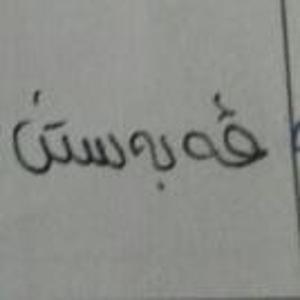 ڤەبەستن